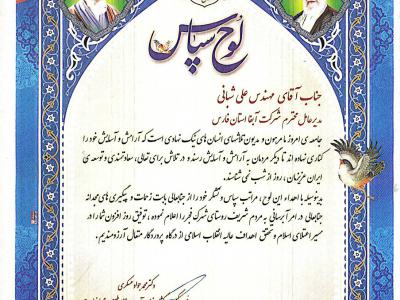 لوح سپاس
جناب آقای مهندس علی شبانی
مدیرعامل محترم شرکت آبفا استان فارس
جامعه‌ی امروز ما مرهون و مدیون تلاشهای انسان های نیک نهادی است که آرامش و آسایش خود را
کناری نهاده اند تا دیگر مردمان به آرامش و آسایش رسند و در تلاش برای تعالی، سعادتمندی و توسعه‌ی
ایران عزیزمان، روز از شب نمی شناسند.
بدینوسیله با اهداء این لوح، مراتب سپاس و تشکر خود را از جنابعالی بابت زحمات و پیگیری های مجدانه
جنابعالی در امر آبرسانی به مردم شریف روستای شهرک فجر را اعلام نموده، توفیق روز افزون شما را در
مسیر اعتلای اسلام و تحقق اهداف عالیه انقلاب اسلامی از درگاه پروردگار متعال آرزومندیم.
دکتر محمد جواد عسکری